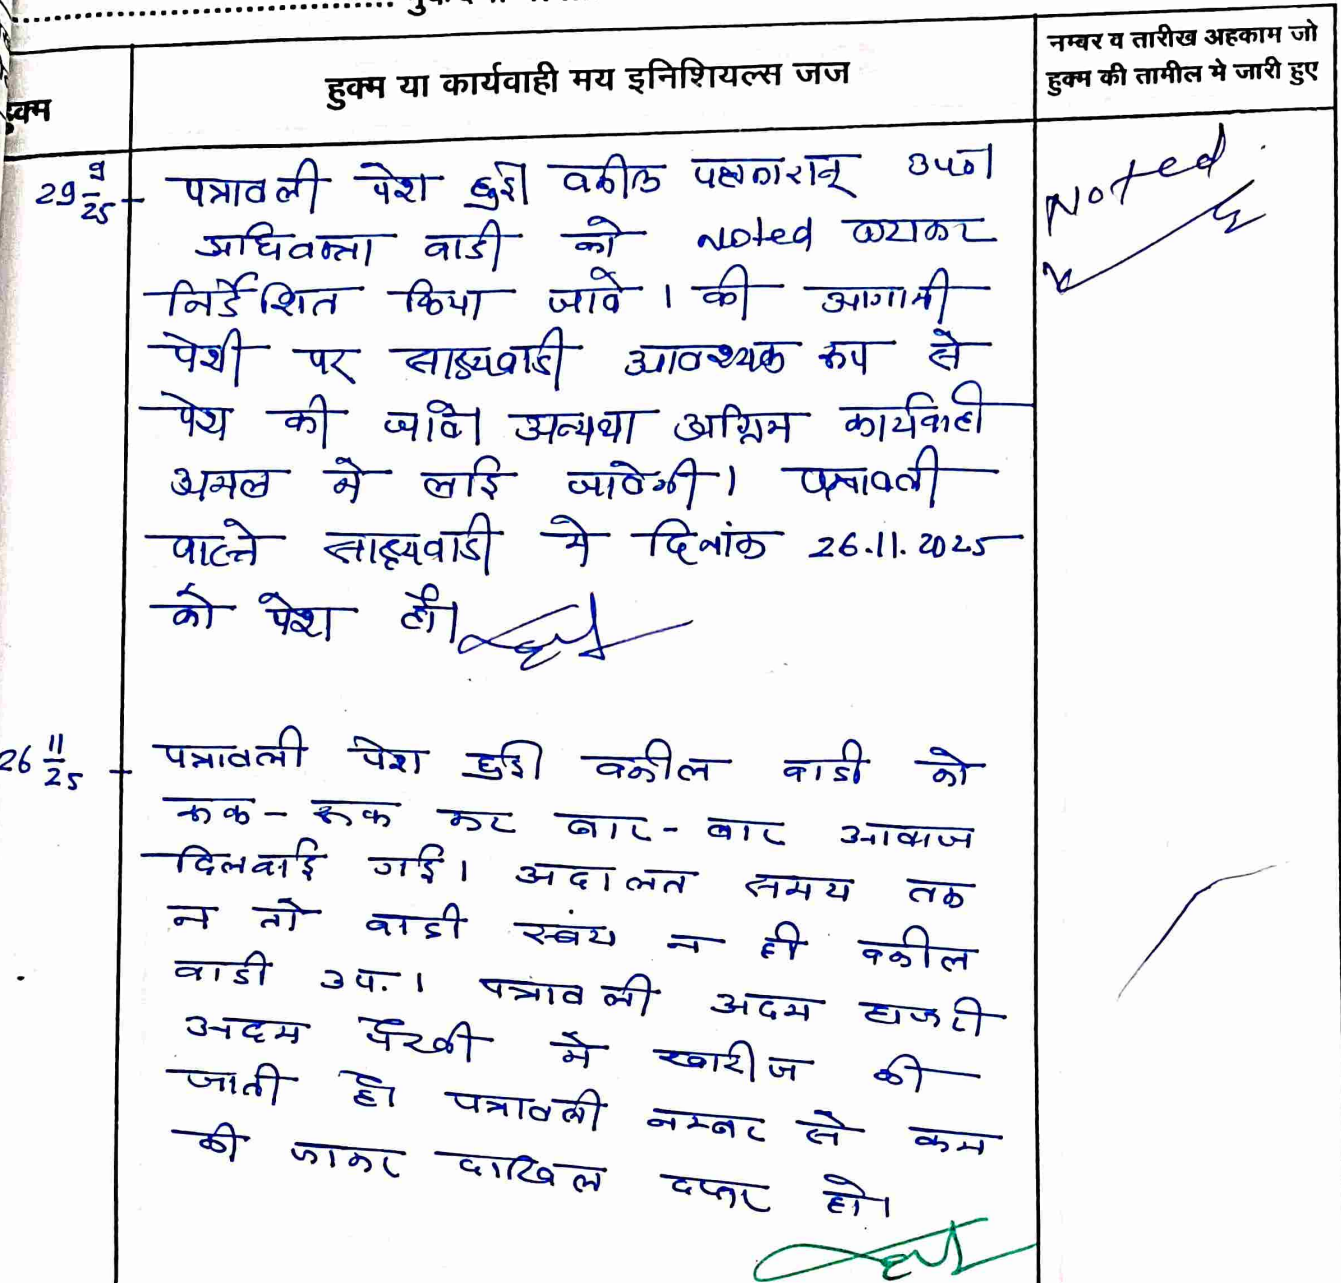 हुक्म या कार्यवाही मय इनिशियल्स जज
नम्बर व तारीख अहकाम जो
हुक्म की तामील मे जारी हुए
हुक्म
29 9/25
पत्रावली पेश हुई वकील पक्षकारान् उप०।
अधिवक्ता वादी को Noted करवाकर
निर्देशित किया जावे । की आगामी
पेशी पर साक्ष्यवादी आवश्यक रूप से
पेश की जावे। अन्यथा अग्रिम कार्यवाही
अमल मे लाई जावेगी। पत्रावली
वास्ते साक्ष्यवादी मे दिनांक 26.11.2025
को पेश हो।
Noted
26 11/25
पत्रावली पेश हुई वकील वादी को
रूक-रूक कर बार-बार आवाज
दिलवाई गई। अदालत समय तक
न तो वादी स्वंय न ही वकील
वादी उप.। पत्रावली अदम हाजरी
अदम पैरवी मे खारीज की
जाती है। पत्रावली नम्बर से कम
की जाकर दाखिल दफ्तर हो।